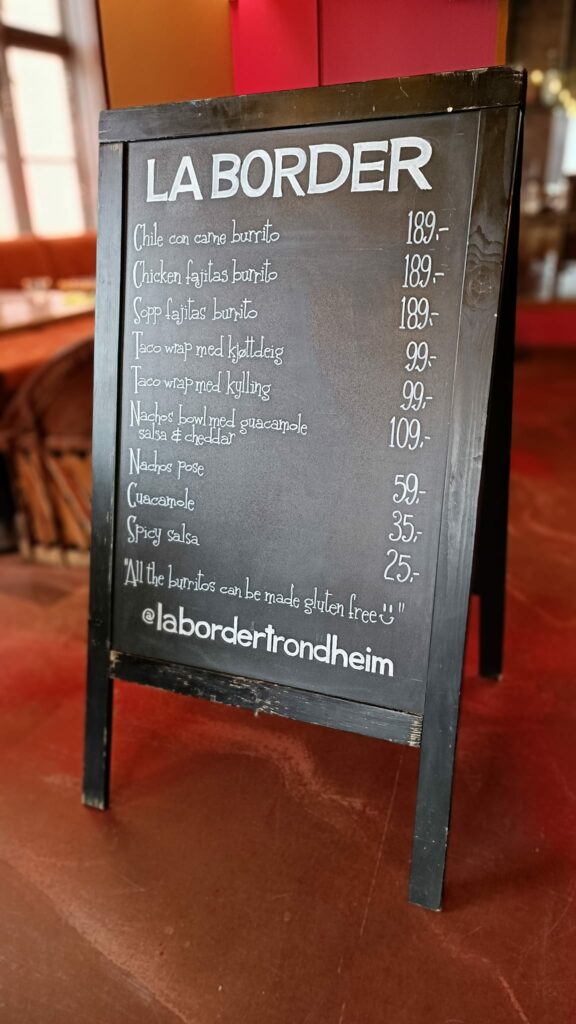 LA BORDER
Chile con carne burrito 189,-
Chicken fajitas burrito 189,-
Sopp fajitas burrito 189,-
Taco wrap med kjøttdeig 99,-
Taco wrap med kylling 99,-
Nachos bowl med guacamole 109,-
salsa & cheddar
Nachos pose 59,-
Guacamole 35,-
Spicy salsa 25,-
"All the burritos can be made gluten free ü"
@labordertrondheim